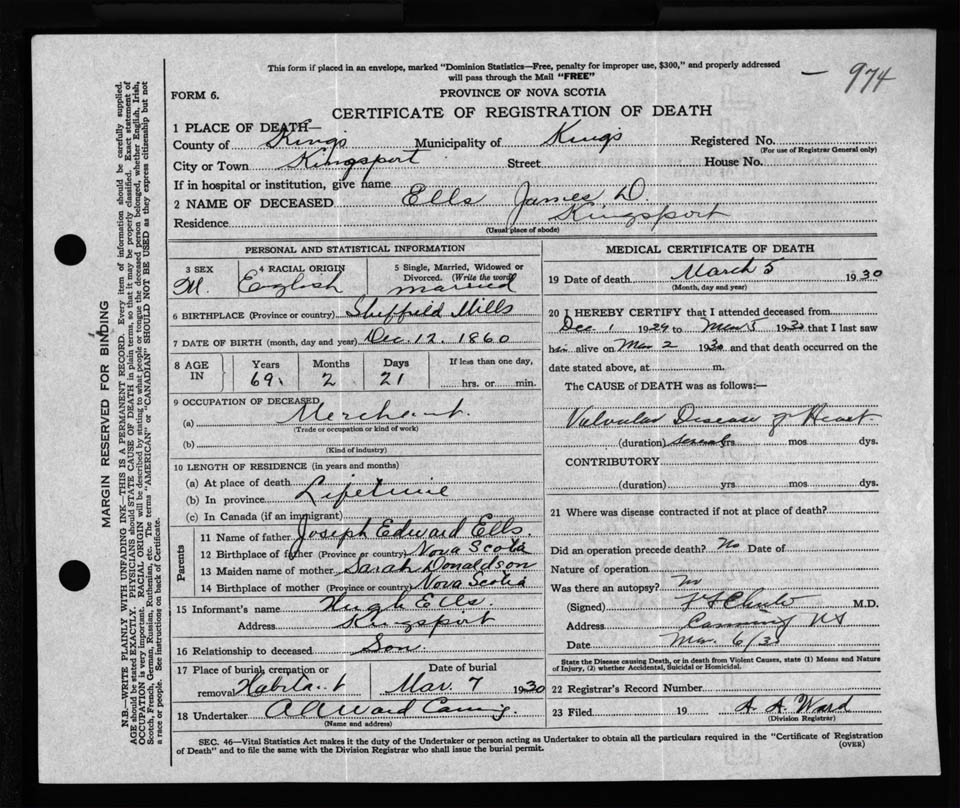 This form if placed in an envelope, marked "Dominion Statistics—Free, penalty for improper use, $300," and properly addressed
will pass through the Mail "FREE"
— 974
FORM 6.
PROVINCE OF NOVA SCOTIA
CERTIFICATE OF REGISTRATION OF DEATH
1 PLACE OF DEATH—
County of Kings Municipality of Kings Registered No.
(For use of Registrar General only)
City or Town Kingsport Street House No.
If in hospital or institution, give name
2 NAME OF DECEASED Ells James D.
Residence Kingsport
(Usual place of abode)
PERSONAL AND STATISTICAL INFORMATION
3 SEX 4 RACIAL ORIGIN 5 Single, Married, Widowed or
Divorced. (Write the word)
M. English married
6 BIRTHPLACE (Province or country) Sheffield Mills
7 DATE OF BIRTH (month, day and year) Dec. 12. 1860
8 AGE IN Years Months Days If less than one day,
69 2 21 hrs. or min.
9 OCCUPATION OF DECEASED
(a) Merchant.
(Trade or occupation or kind of work)
(b)
(Kind of industry)
10 LENGTH OF RESIDENCE (in years and months)
(a) At place of death
(b) In province Lifetime
(c) In Canada (if an immigrant)
Parents
11 Name of father Joseph Edward Ells.
12 Birthplace of father (Province or country) Nova Scotia
13 Maiden name of mother Sarah Donaldson
14 Birthplace of mother (Province or country) Nova Scotia
15 Informant's name Hugh Ells.
Address Kingsport
16 Relationship to deceased Son.
17 Place of burial, cremation or Date of burial
removal Mar. 7 1930
18 Undertaker A A Ward Canning.
(Name and address)
MEDICAL CERTIFICATE OF DEATH
19 Date of death March 5 1930
(Month, day and year)
20 I HEREBY CERTIFY that I attended deceased from
Dec 1 1929 to Mar 5 1930 that I last saw
him alive on Mar 2 1930 and that death occurred on the
date stated above, at m.
The CAUSE of DEATH was as follows:—
Valvular Disease of Heart
(duration) several yrs. mos. dys.
CONTRIBUTORY
(duration) yrs. mos. dys.
21 Where was disease contracted if not at place of death?
Did an operation precede death? No Date of
Nature of operation
Was there an autopsy? No
(Signed) M.D.
Address Canning NS
Date Mar. 6/30
State the Disease causing Death, or in death from Violent Causes, state (1) Means and Nature
of Injury, (2) whether Accidental, Suicidal or Homicidal.
22 Registrar's Record Number
23 Filed 19 A. A. Ward
(Division Registrar)
SEC. 46—Vital Statistics Act makes it the duty of the Undertaker or person acting as Undertaker to obtain all the particulars required in the "Certificate of Registration
of Death" and to file the same with the Division Registrar who shall issue the burial permit.
(OVER)
MARGIN RESERVED FOR BINDING
N.B.—WRITE PLAINLY WITH UNFADING INK—THIS IS A PERMANENT RECORD. Every item of information should be carefully supplied.
AGE should be stated EXACTLY. PHYSICIANS should STATE CAUSE OF DEATH in plain terms, so that it may be properly classified. Exact statement of
OCCUPATION is very important. RACIAL ORIGIN will be described by stating to what people or tongue the deceased person belonged, whether English, Irish,
Scotch, French, German, Russian, Ruthenian, etc. The terms "AMERICAN" or "CANADIAN" SHOULD NOT BE USED as they express citizenship but not
a race or people. See instructions on back of Certificate.